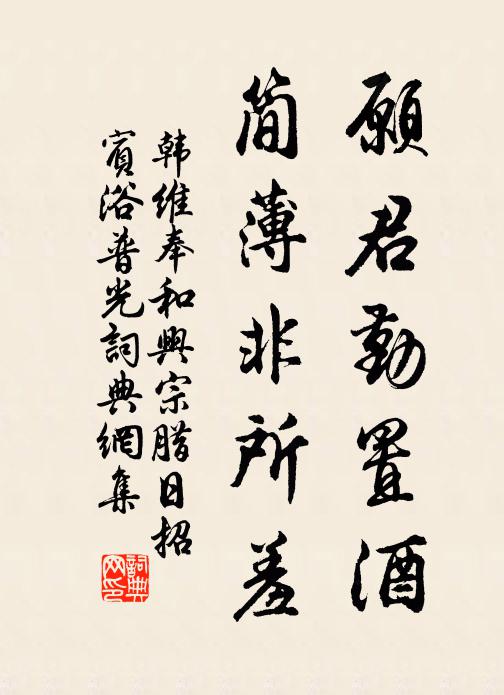 願君勤置酒
简薄非所羞
韩維奉和興宗腊日招
賓浴普光詞典網集
詞典
网印